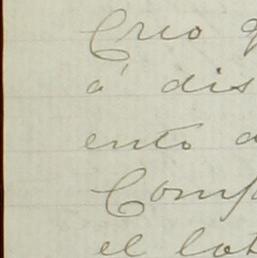 Creo
á dis
ento
Comp
el lot